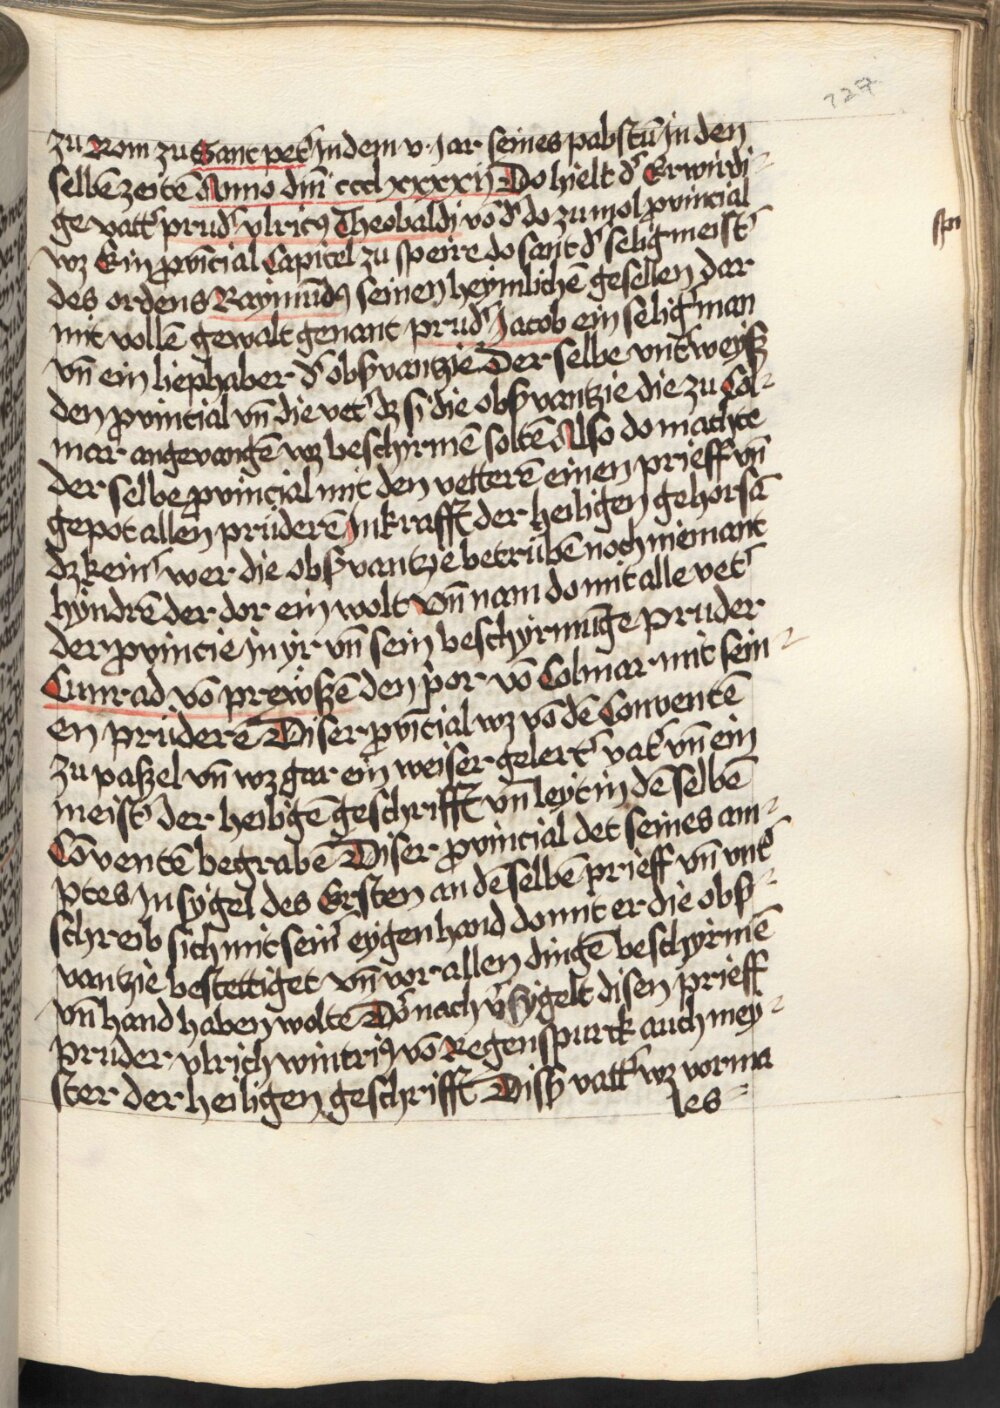 127
zu Rom zu Sant pet' Jn dem v. Jar seines pabstū Jn den
selbē zeitē Anno dm̄ ccclxxxxij Do hielt d' Erwirdi=
ge vatt' prud' vlricꝰ Theobaldj vō d' do zu mol provincial
wz Ein provīcial Capitel zu speire do sant d' selig meist'
des ordens Raymūdꝰ seinen heymlichē gesellen dar
mit vollē gewalt genant prud' Jacob ein selig man
vn̄ ein liephaber d' obsvantzie Der selbe vnt'weyßt
den provincial vn̄ die vet' dz si die obsvantzie die zu Col=
mar angevangē wz beschirmē soltē Also do machte
der selbe provincial mit den vetterē einen prieff vn̄
gepot allen prüderē Jn krafft der heiligen gehorsā
dz kein' wer die obsvantzie betrübē noch niemant
hyndrē der dor ein wolt vn̄ nam do mit alle vet'
der provincie in yr vn̄ sein beschyrmūge Pruder
Cunrad vō prewßē den p̄or vō Colmar mit sein=
en prüderē Diser provīcial wz vō dē Conventē
zu paßel vn̄ wz gar ein weiser gelert' vat' vn̄ ein
meist' der heiligē geschrifft vn̄ leyt in dē selbē
Cōventē begrabē Diser provincial det seines am=
ptes Jnsygel des Ersten an dē selbē prieff vn̄ vnt'=
schreib sich mit sein' eygen hand do mit er die obs'=
vantzie bestettiget vn̄ vor allen dingē beschyrmē
vn̄ hand haben woltē Do nach v'sygelt disen prieff
pruder vlrich wintriꝰ vō Regenspurck auch mey=
ster der heiligen geschrifft Dis' vatt' wz vorma
les=